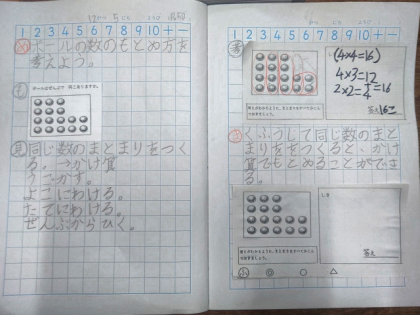 1 2 3 4 5 6 7 8 9 10 + -
め ボールの数のもとめ方を
考えよう。
も
ボールはぜんぶで何こありますか。
見 同じ数のまとまりをつく
る。→かけ算
うごかす。
よこにわける。
たてにわける。
ぜんぶからひく。
1 2 3 4 5 6 7 8 9 10 + -
考
(4×4=16)
4×3=12
2×2=4
=16
答え16こ
ま くふうして同じ数のまと
まりをつくると、かけ
算でもとめることができ
る。
答え
ふ ◎ ○ △